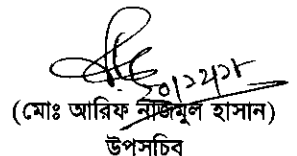 (মোঃ আরিফ নাজমুল হাসান)
উপসচিব